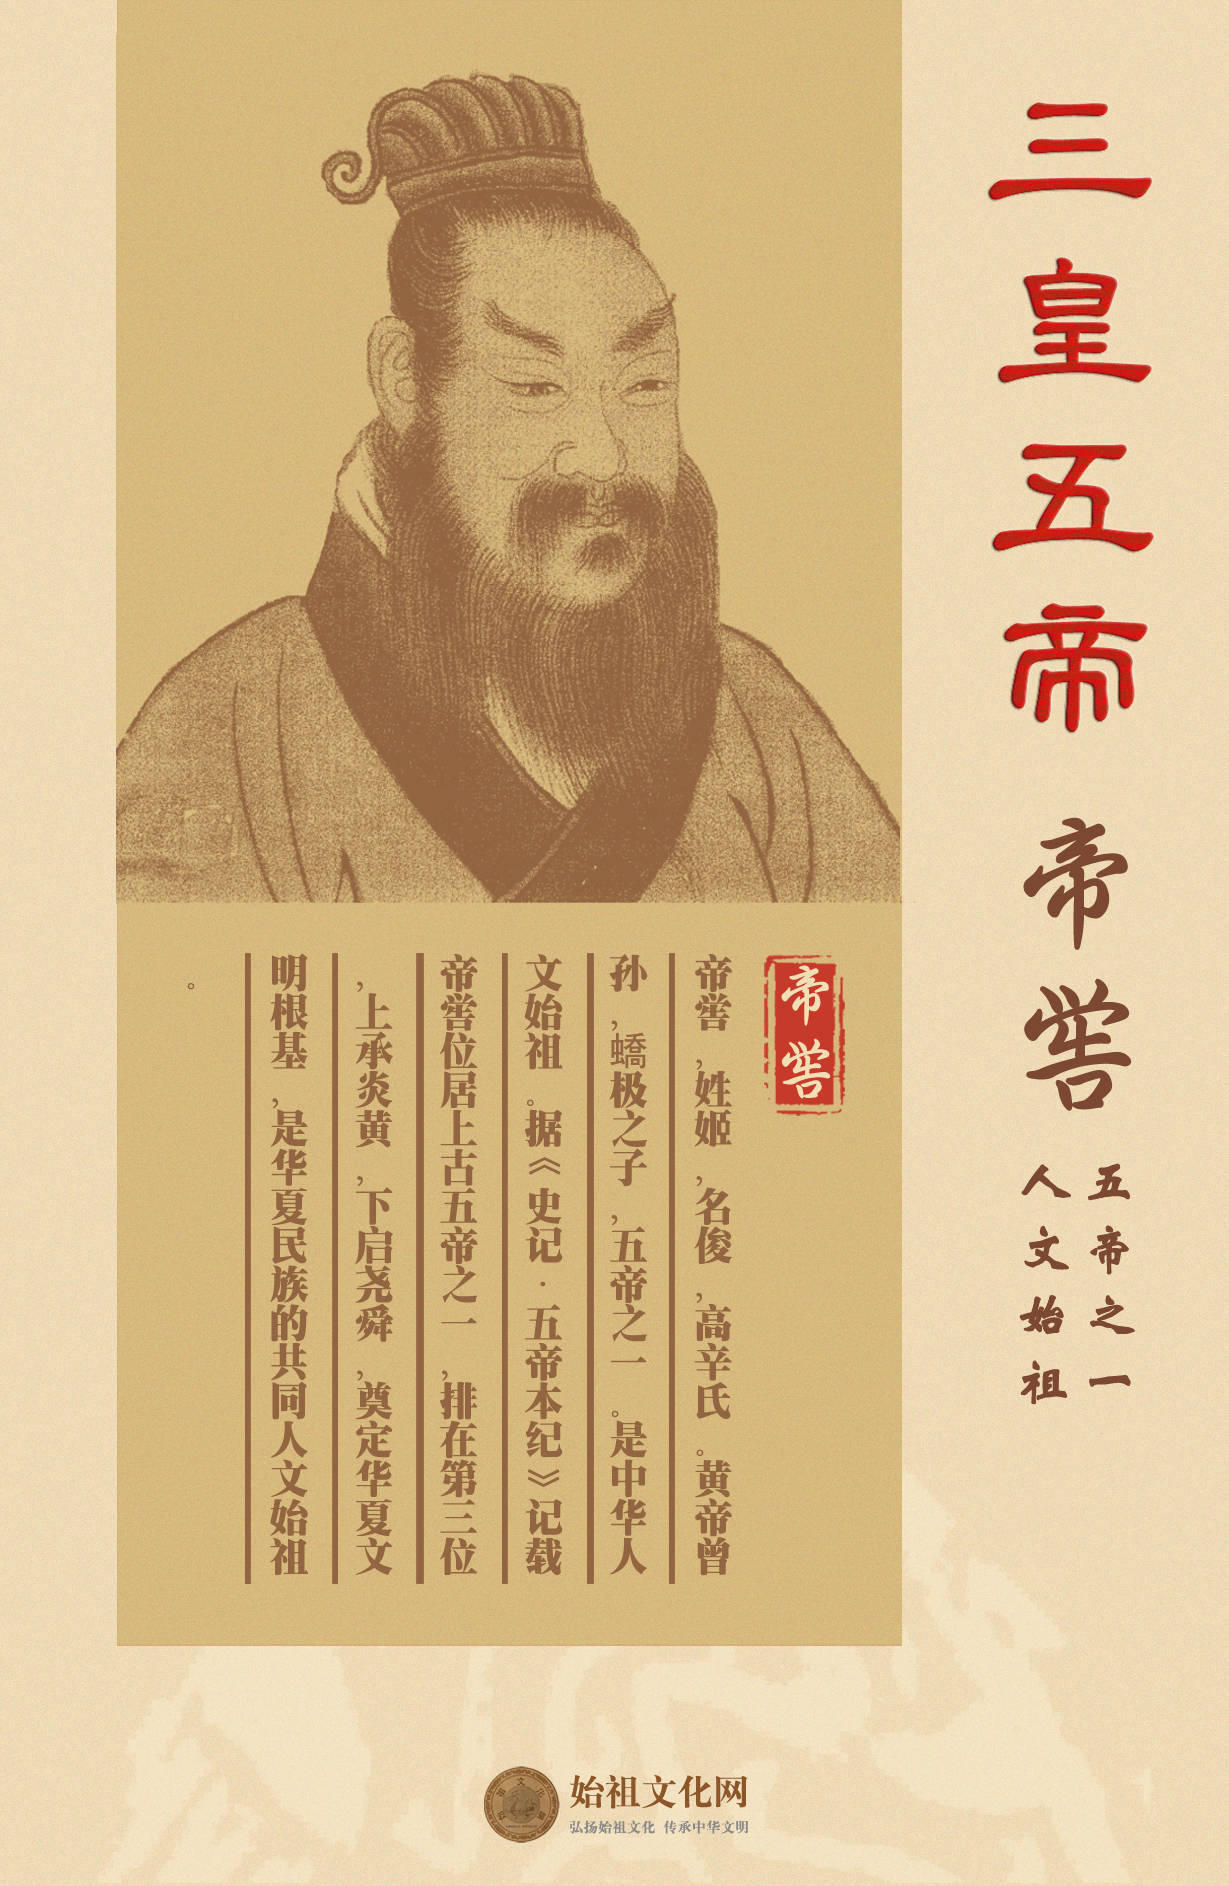 三皇五帝
帝喾
五帝之一
人文始祖
帝喾
帝喾，姓姬，名俊，高辛氏。黄帝曾
孙，蟜极之子，五帝之一。是中华人
文始祖。据《史记·五帝本纪》记载
帝喾位居上古五帝之一，排在第三位
，上承炎黄，下启尧舜，奠定华夏文
明根基，是华夏民族的共同人文始祖
。
始祖文化网
弘扬始祖文化 传承中华文明